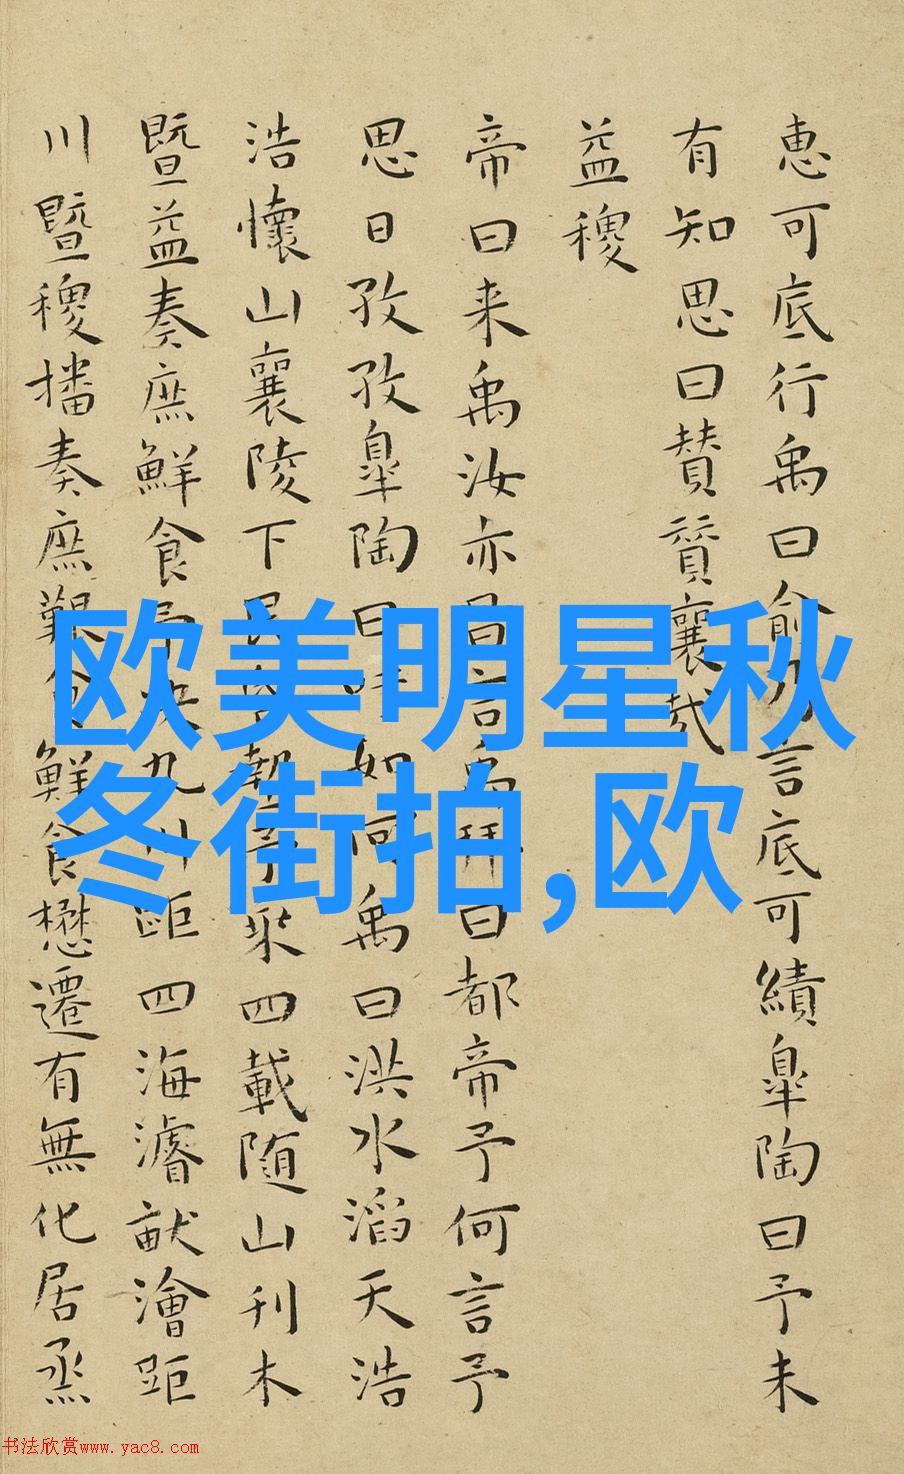 惠可底行禹曰俞乃言底可績皐陶曰予未
有知思曰賛賛襄哉
益稷
帝曰来禹汝亦昌言禹拜曰都帝予何言予
思日孜孜皐陶曰吁如何禹曰洪水滔天浩
浩懷山襄陵下民昏墊予乘四載随山刊木
暨益奏庶鮮食予决九川距四海濬畎澮距
川暨稷播奏庶艱食鮮食懋遷有無化居烝
欧美明星秋
冬街拍,欧
书法欣赏www.yac8.com